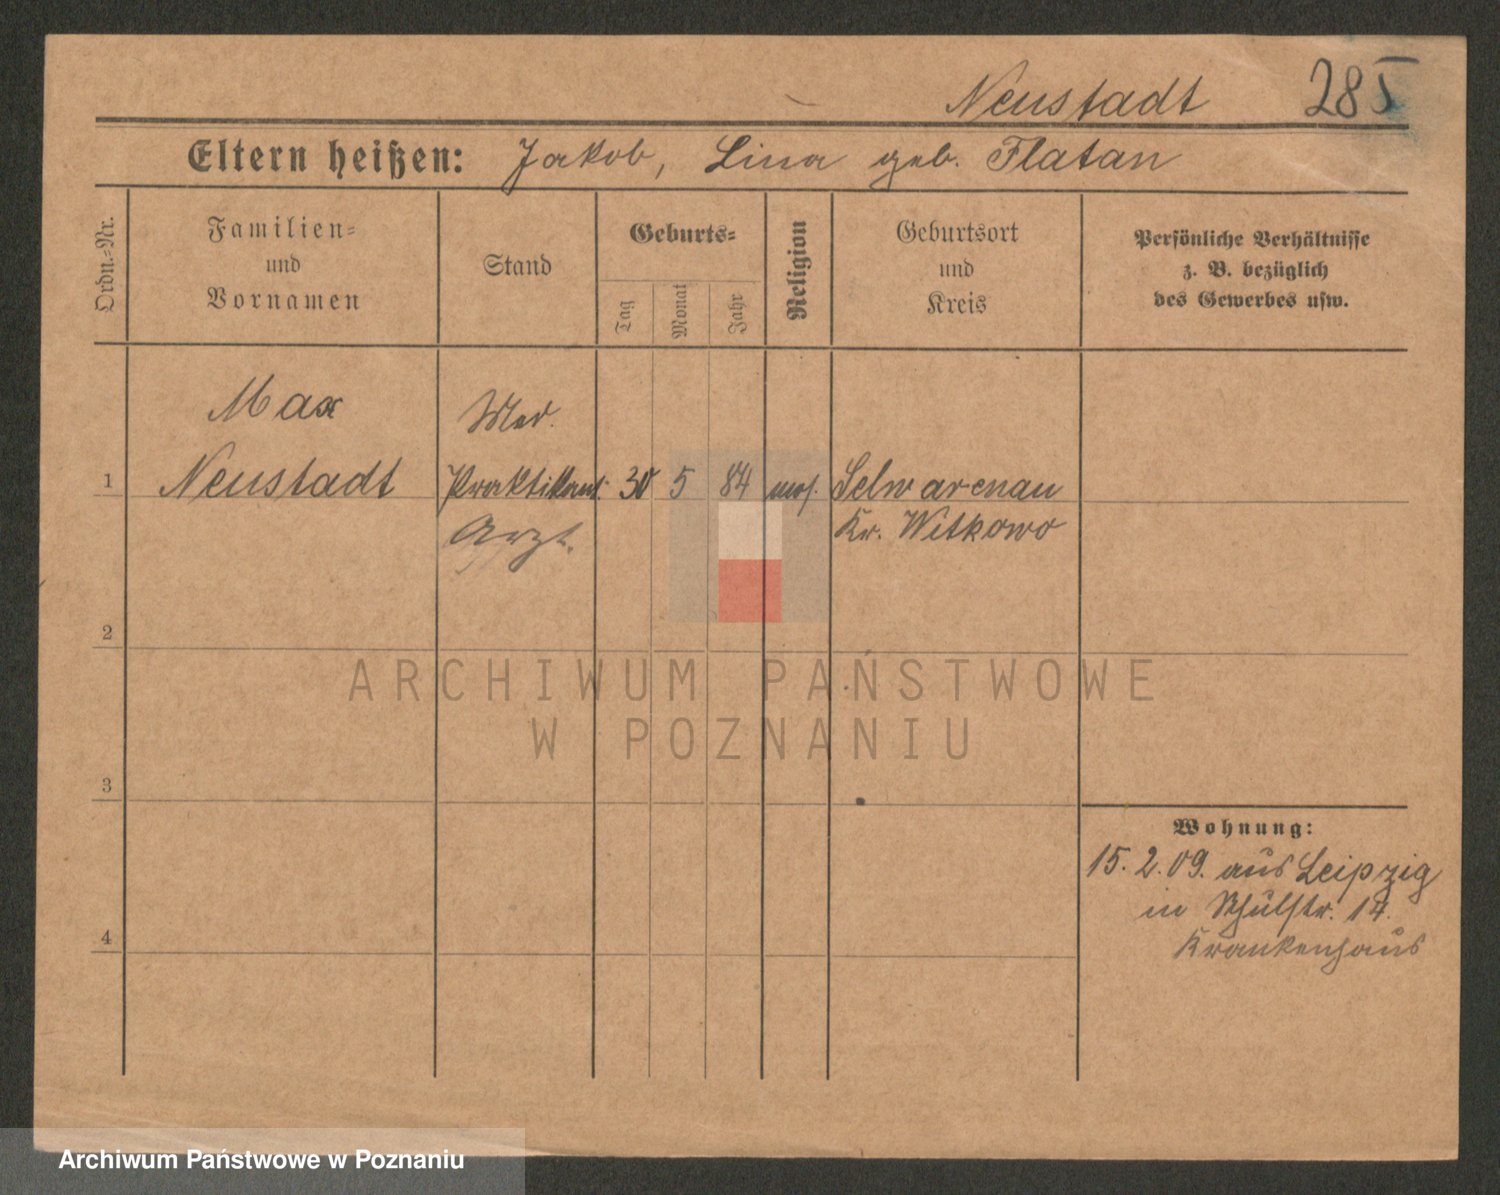 Neustadt 285
Eltern heißen: Jakob, Lina geb. Flatau
Ordn.-Nr.
Familien-
und
Vornamen
Stand
Geburts-
Tag
Monat
Jahr
Religion
Geburtsort
und
Kreis
Persönliche Verhältnisse
z. B. bezüglich
des Gewerbes usw.
Max Med.
1 Neustadt Praktikant 30 5 84 mos. Schwarzenau
Arzt. Kr. Witkowo
2
ARCHIWUM PAŃSTWOWE
W POZNANIU
3
Wohnung:
15. 2. 09. aus Leipzig
in Schulstr. 14.
4 Krankenhaus
Archiwum Państwowe w Poznaniu